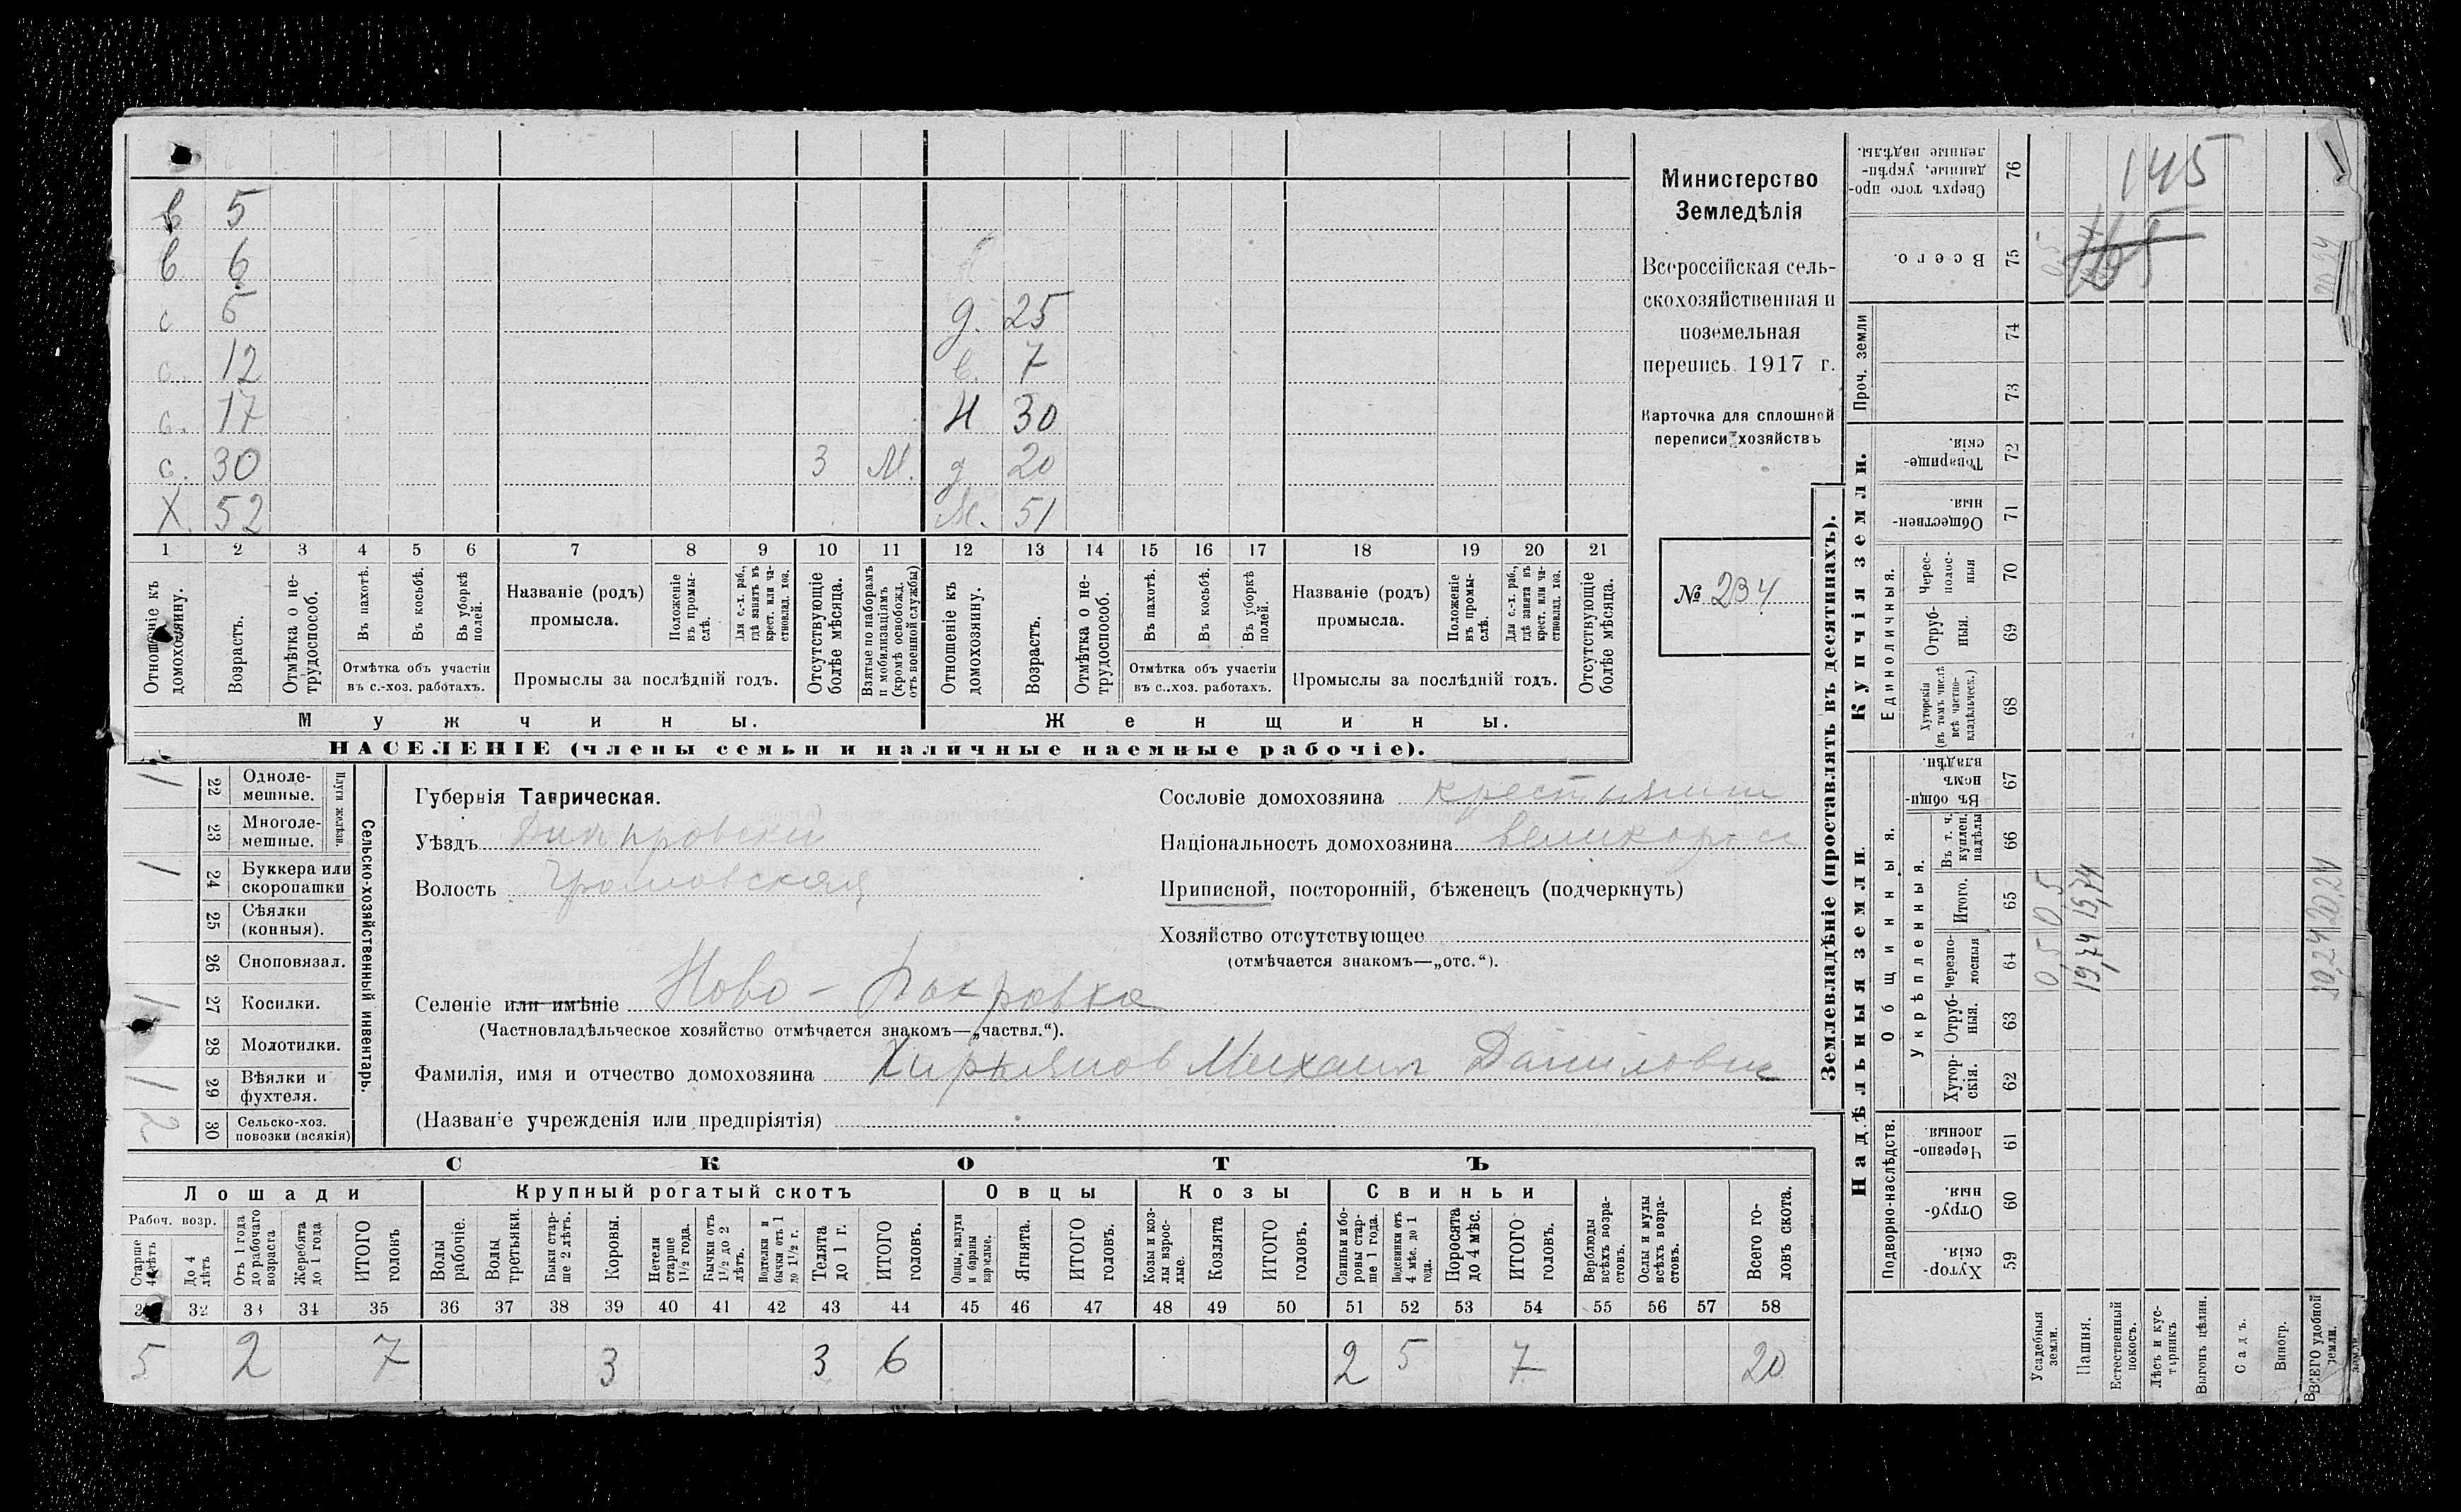 в 5
в 6
с 5 д. 25
с. 12 в. 7
с. 17 Н 30
с. 30 3 М. д 20
Х. 52 М. 51
1 2 3 4 5 6 7 8 9 10 11 12 13 14 15 16 17 18 19 20 21
Отношеніе къ домохозяину.
Возрастъ.
Отмѣтка о не-трудоспособ.
Въ пахотѣ.
Въ косьбѣ.
Въ уборкѣ полей.
Отмѣтка объ участіи
въ с.-хоз. работахъ.
Названіе (родъ)
промысла.
Положеніе въ промы-слѣ.
Для с.-х. раб., гдѣ занятъ въ крест. или ча-ствовлад. хоз.
Промыслы за послѣдній годъ.
Отсутствующіе болѣе мѣсяца.
Взятые по наборамъ и мобилизаціямъ (кромѣ освобожд. отъ военной службы)
Отношеніе къ домохозяину.
Возрастъ.
Отмѣтка о не-трудоспособ.
Въ пахотѣ.
Въ косьбѣ.
Въ уборкѣ полей.
Отмѣтка объ участіи
въ с..хоз. работахъ.
Названіе (родъ)
промысла.
Положеніе въ промы-слѣ.
Для с.-х. раб., гдѣ занята въ крест. или ча-ствовлад. хоз.
Промыслы за послѣдній годъ.
Отсутствующіе болѣе мѣсяца.
Мужчины. Женщины.
НАСЕЛЕНІЕ (члены семьи и наличные наемные рабочіе).
Министерство
Земледѣлія
Всероссійская сель-
скохозяйственная и
поземельная
перепись 1917 г.
Карточка для сплошной
переписи хозяйствъ
№ 234
1 22 Одноле-мешные.
23 Многоле-мешные.
Плуги желѣзн.
1 24 Буккера или скоропашки
25 Сѣялки (конныя).
26 Сноповязал.
1 27 Косилки.
28 Молотилки.
1 29 Вѣялки и фухтеля.
2 30 Сельско-хоз. повозки (всякія)
Сельско-хозяйственный инвентарь.
Губернія Таврическая.
Уѣздъ Днѣпровски
Волость Громовская
Селеніе или имѣніе Ново-Покровка
(Частновладѣльческое хозяйство отмѣчается знакомъ—„частвл.“).
Фамилія, имя и отчество домохозяина Хирьянов Михаил Данилович
(Названіе учрежденія или предпріятія)
Сословіе домохозяина крестьянин
Національность домохозяина великоросс
Приписной, посторонній, бѣженецъ (подчеркнуть)
Хозяйство отсутствующее
(отмѣчается знакомъ—„отс.“).
СКОТЪ
Лошади Крупный рогатый скотъ Овцы Козы Свиньи
Рабоч. возр.
Старше 4 лѣтъ
До 4 лѣтъ
Отъ 1 года до рабочаго возраста
Жеребята до 1 года
ИТОГО головъ
Волы рабочіе.
Волы третьяки.
Быки стар-ше 2 лѣтъ.
Коровы.
Нетели старше 1 1/2 года.
Бычки отъ 1 1/2 до 2 лѣтъ.
Подтелки и бычки отъ 1 до 1 1/2 г.
Телята до 1 г.
ИТОГО головъ.
Овцы, валухи и бараны взрослые.
Ягнята.
ИТОГО головъ.
Козы и коз-лы взрос-лые.
Козлята
ИТОГО головъ.
Свиньи и бо-ровы стар-ше 1 года.
Подсвинки отъ 4 мѣс. до 1 года.
Поросята до 4 мѣс.
ИТОГО головъ.
Верблюды всѣхъ возра-стовъ.
Ослы и мулы всѣхъ возра-стовъ.
Всего го-ловъ скота.
32 33 34 35 36 37 38 39 40 41 42 43 44 45 46 47 48 49 50 51 52 53 54 55 56 57 58
5 2 7 3 3 6 2 5 7 20
Землевладѣніе (проставлять въ десятинахъ).
Купчія земли.
Надѣльныя земли.
Сверхъ того про-данные, укрѣп-ленные надѣлы. 76 145
Всего. 75 0,5
Проч. земли 74 73
Товарище-скія 72
Обществен-ныя 71
Единоличныя.
Черес-полос-ныя 70
Отруб-ныя. 69
Хуторскія (въ томъ числѣ всѣ частно-владѣльческ.) 68
Общинныя.
Въ общи-номъ владѣн. 67
Укрѣпленныя.
Въ т. ч. куплен. надѣлы 66
Итого. 65 0,5 19,74 20,24
черезпо-лосныя 64 0,5 19,74 20,24
Отруб-ныя. 63
Хутор-скія. 62
Подворно-наслѣдств.
Черезпо-лосныя. 61
Отруб-ныя. 60
Хутор-скія. 59
Усадебныя земли.
Пашня.
Естественный покосъ.
Лѣсъ и кус-тарникъ
Выгонъ цѣлин.
Садъ.
Виногр.
ВСЕГО удобной земли.